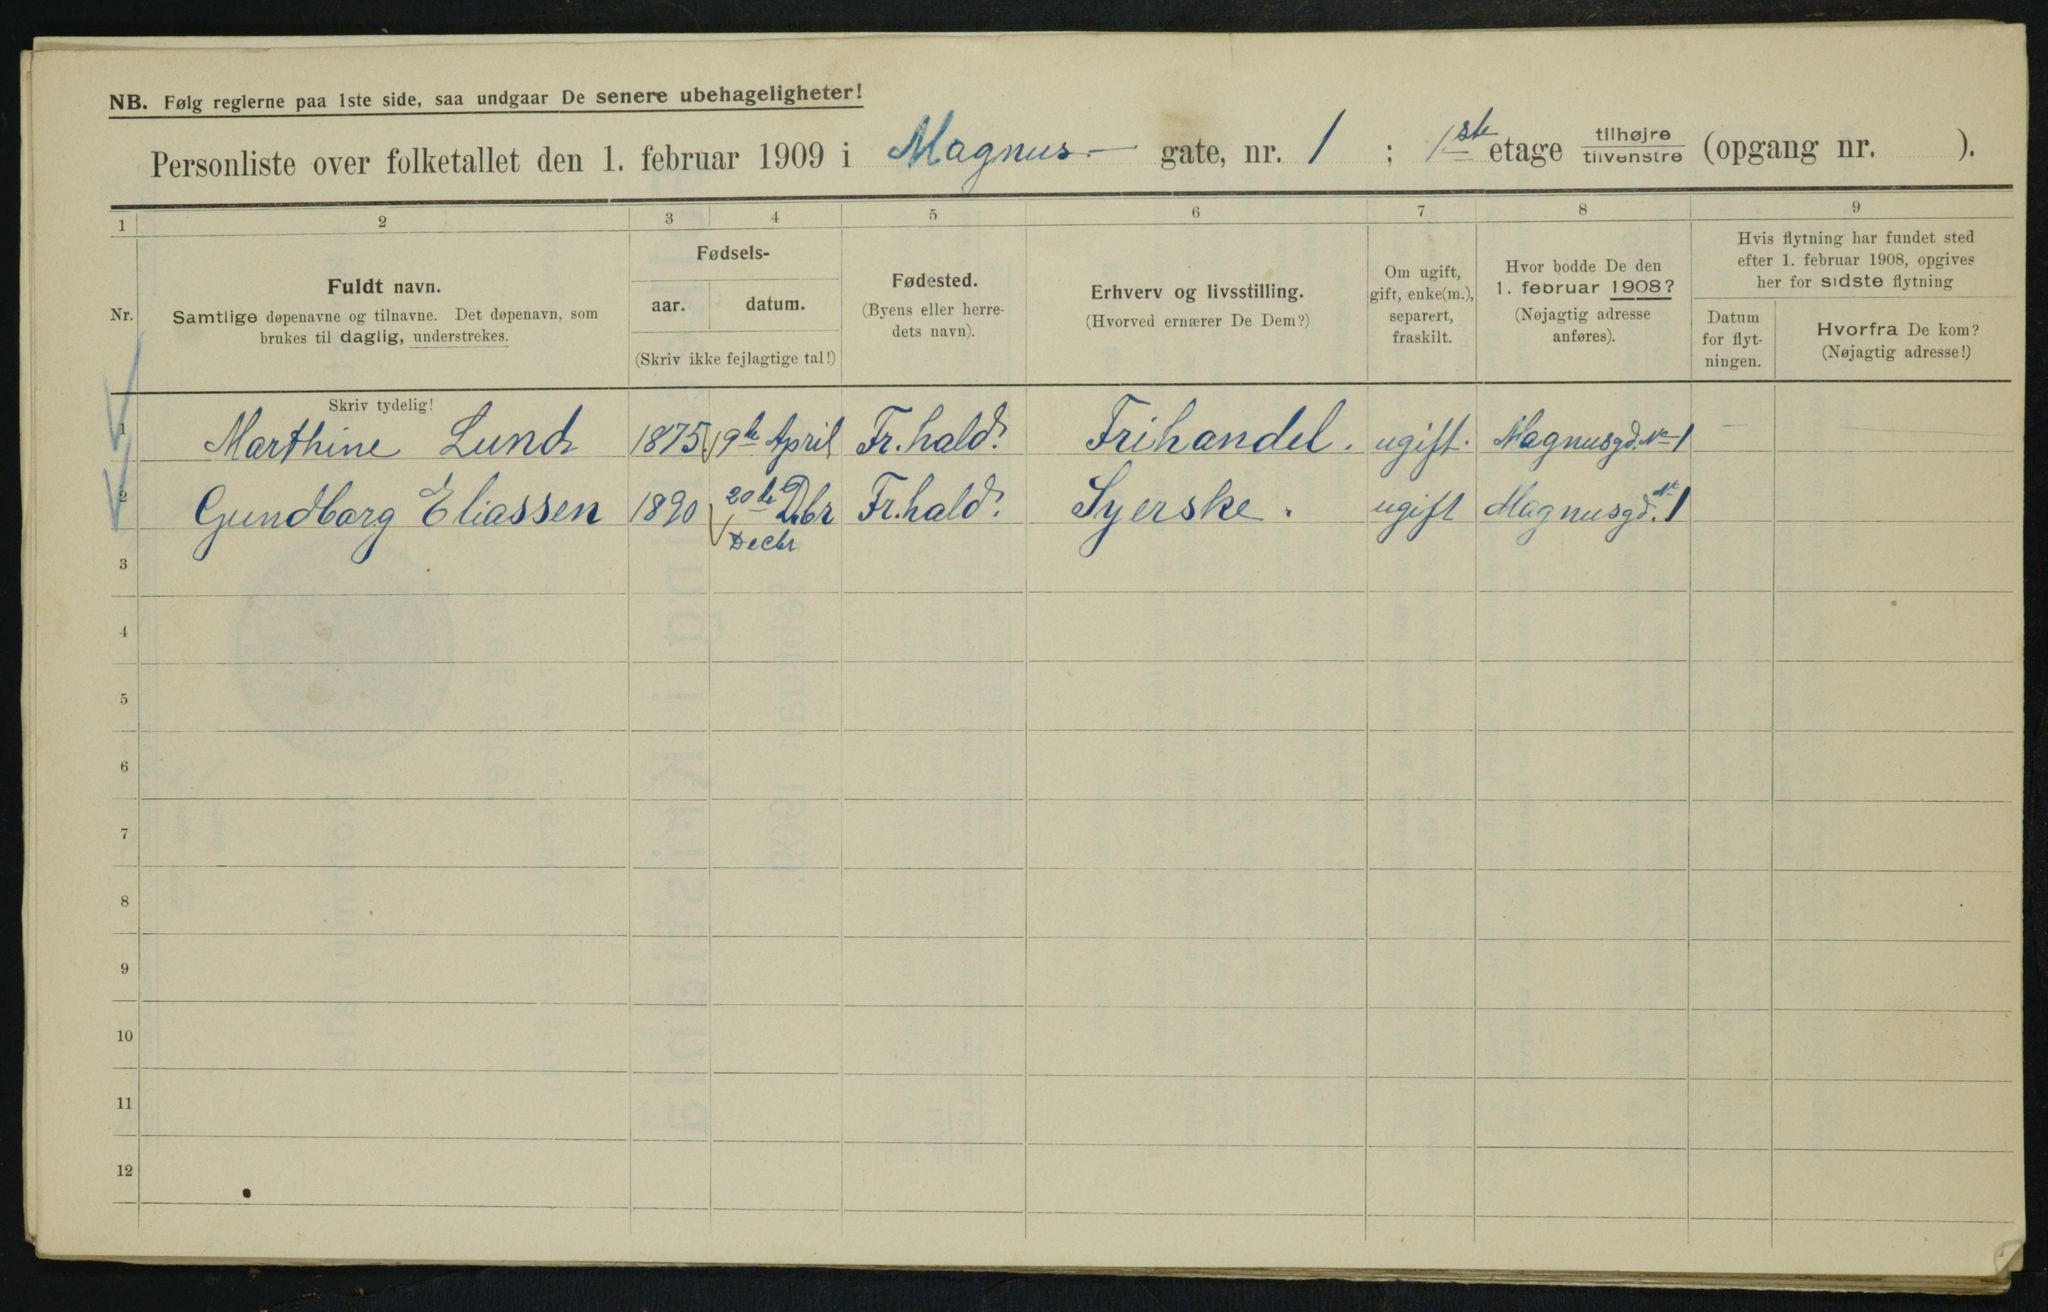 NB. Følg reglerne paa 1ste side, saa undgaar De senere ubehageligheter!
Personliste over folketallet den 1. februar 1909 i Magnus- gate, nr. 1 ; 1ste etage tilhøjre/tilvenstre (opgang nr. ).
1 2 3 4 5 6 7 8 9
Nr.
Fuldt navn.
Samtlige døpenavne og tilnavne. Det døpenavn, som
brukes til daglig, understrekes.
Skriv tydelig!
Fødsels-
aar. datum.
(Skriv ikke fejlagtige tal!)
Fødested.
(Byens eller herre-
dets navn).
Erhverv og livsstilling.
(Hvorved ernærer De Dem?)
Om ugift,
gift, enke(m.),
separert,
fraskilt.
Hvor bodde De den
1. februar 1908?
(Nøjagtig adresse
anføres).
Hvis flytning har fundet sted
efter 1. februar 1908, opgives
her for sidste flytning
Datum
for flyt-
ningen.
Hvorfra De kom?
(Nøjagtig adresse!)
1 Marthine Lund 1875 19de April Fr.hald. Frihandel. ugift. Magnusgd. No 1 —
2 Gundborg Eliassen 1890 20de Dbr Fr.hald. Syerske. ugift Magnusgd. No 1
Decbr
3
4
5
6
7
8
9
10
11
12